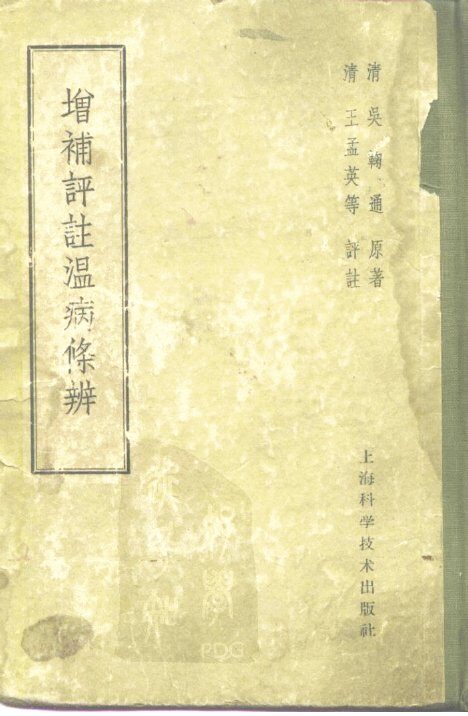 清 吳鞠通 原著
清 王孟英等 評註
增補評註温病條辨
上海科学技术出版社
PDG